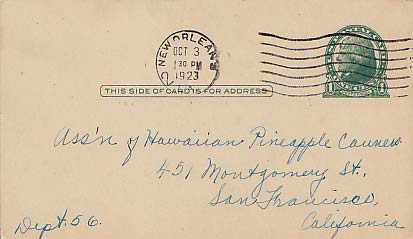 NEW ORLEANS
OCT 3
1 30 PM
1923
1 1
THIS SIDE OF CARD IS FOR ADDRESS
Ass'n of Hawaiian Pineapple Canners
451 Montgomery St.,
San Francisco,
California
Dept. 56.